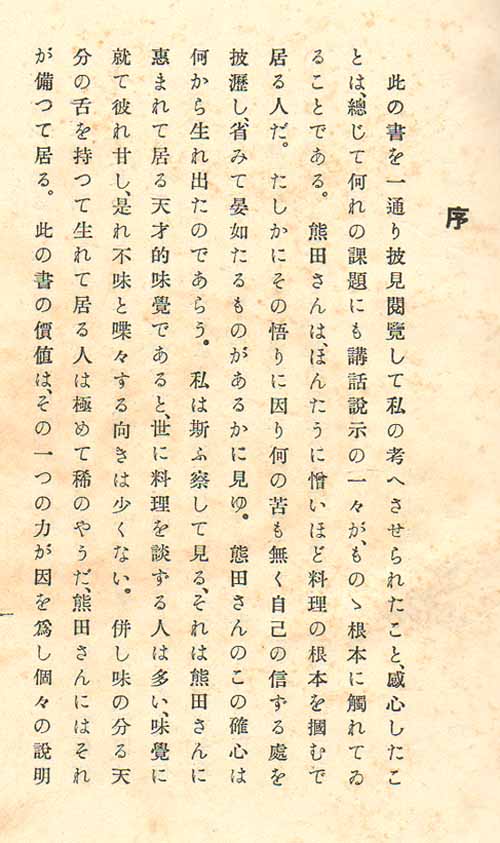 序
此の書を一通り披見閱覽して私の考へさせられたこと、感心したこ
とは、總じて何れの課題にも講話說示の一々が、ものゝ根本に觸れてゐ
ることである。 熊田さんは、ほんたうに憎いほど料理の根本を摑むで
居る人だ。 たしかにその悟りに因り何の苦も無く自己の信ずる處を
披瀝し、省みて晏如たるものがあるかに見ゆ。 熊田さんのこの確心は
何から生れ出たのであらう。 私は斯ふ察して見る、それは熊田さんに
惠まれて居る天才的味覺であると、世に料理を談ずる人は多い、味覺に
就て彼れ甘し、是れ不味と喋々する向きは少くない。 併し味の分る天
分の舌を持つて生れて居る人は極めて稀のやうだ、熊田さんにはそれ
が備つて居る。 此の書の價値は、その一つの力が因を爲し個々の說明